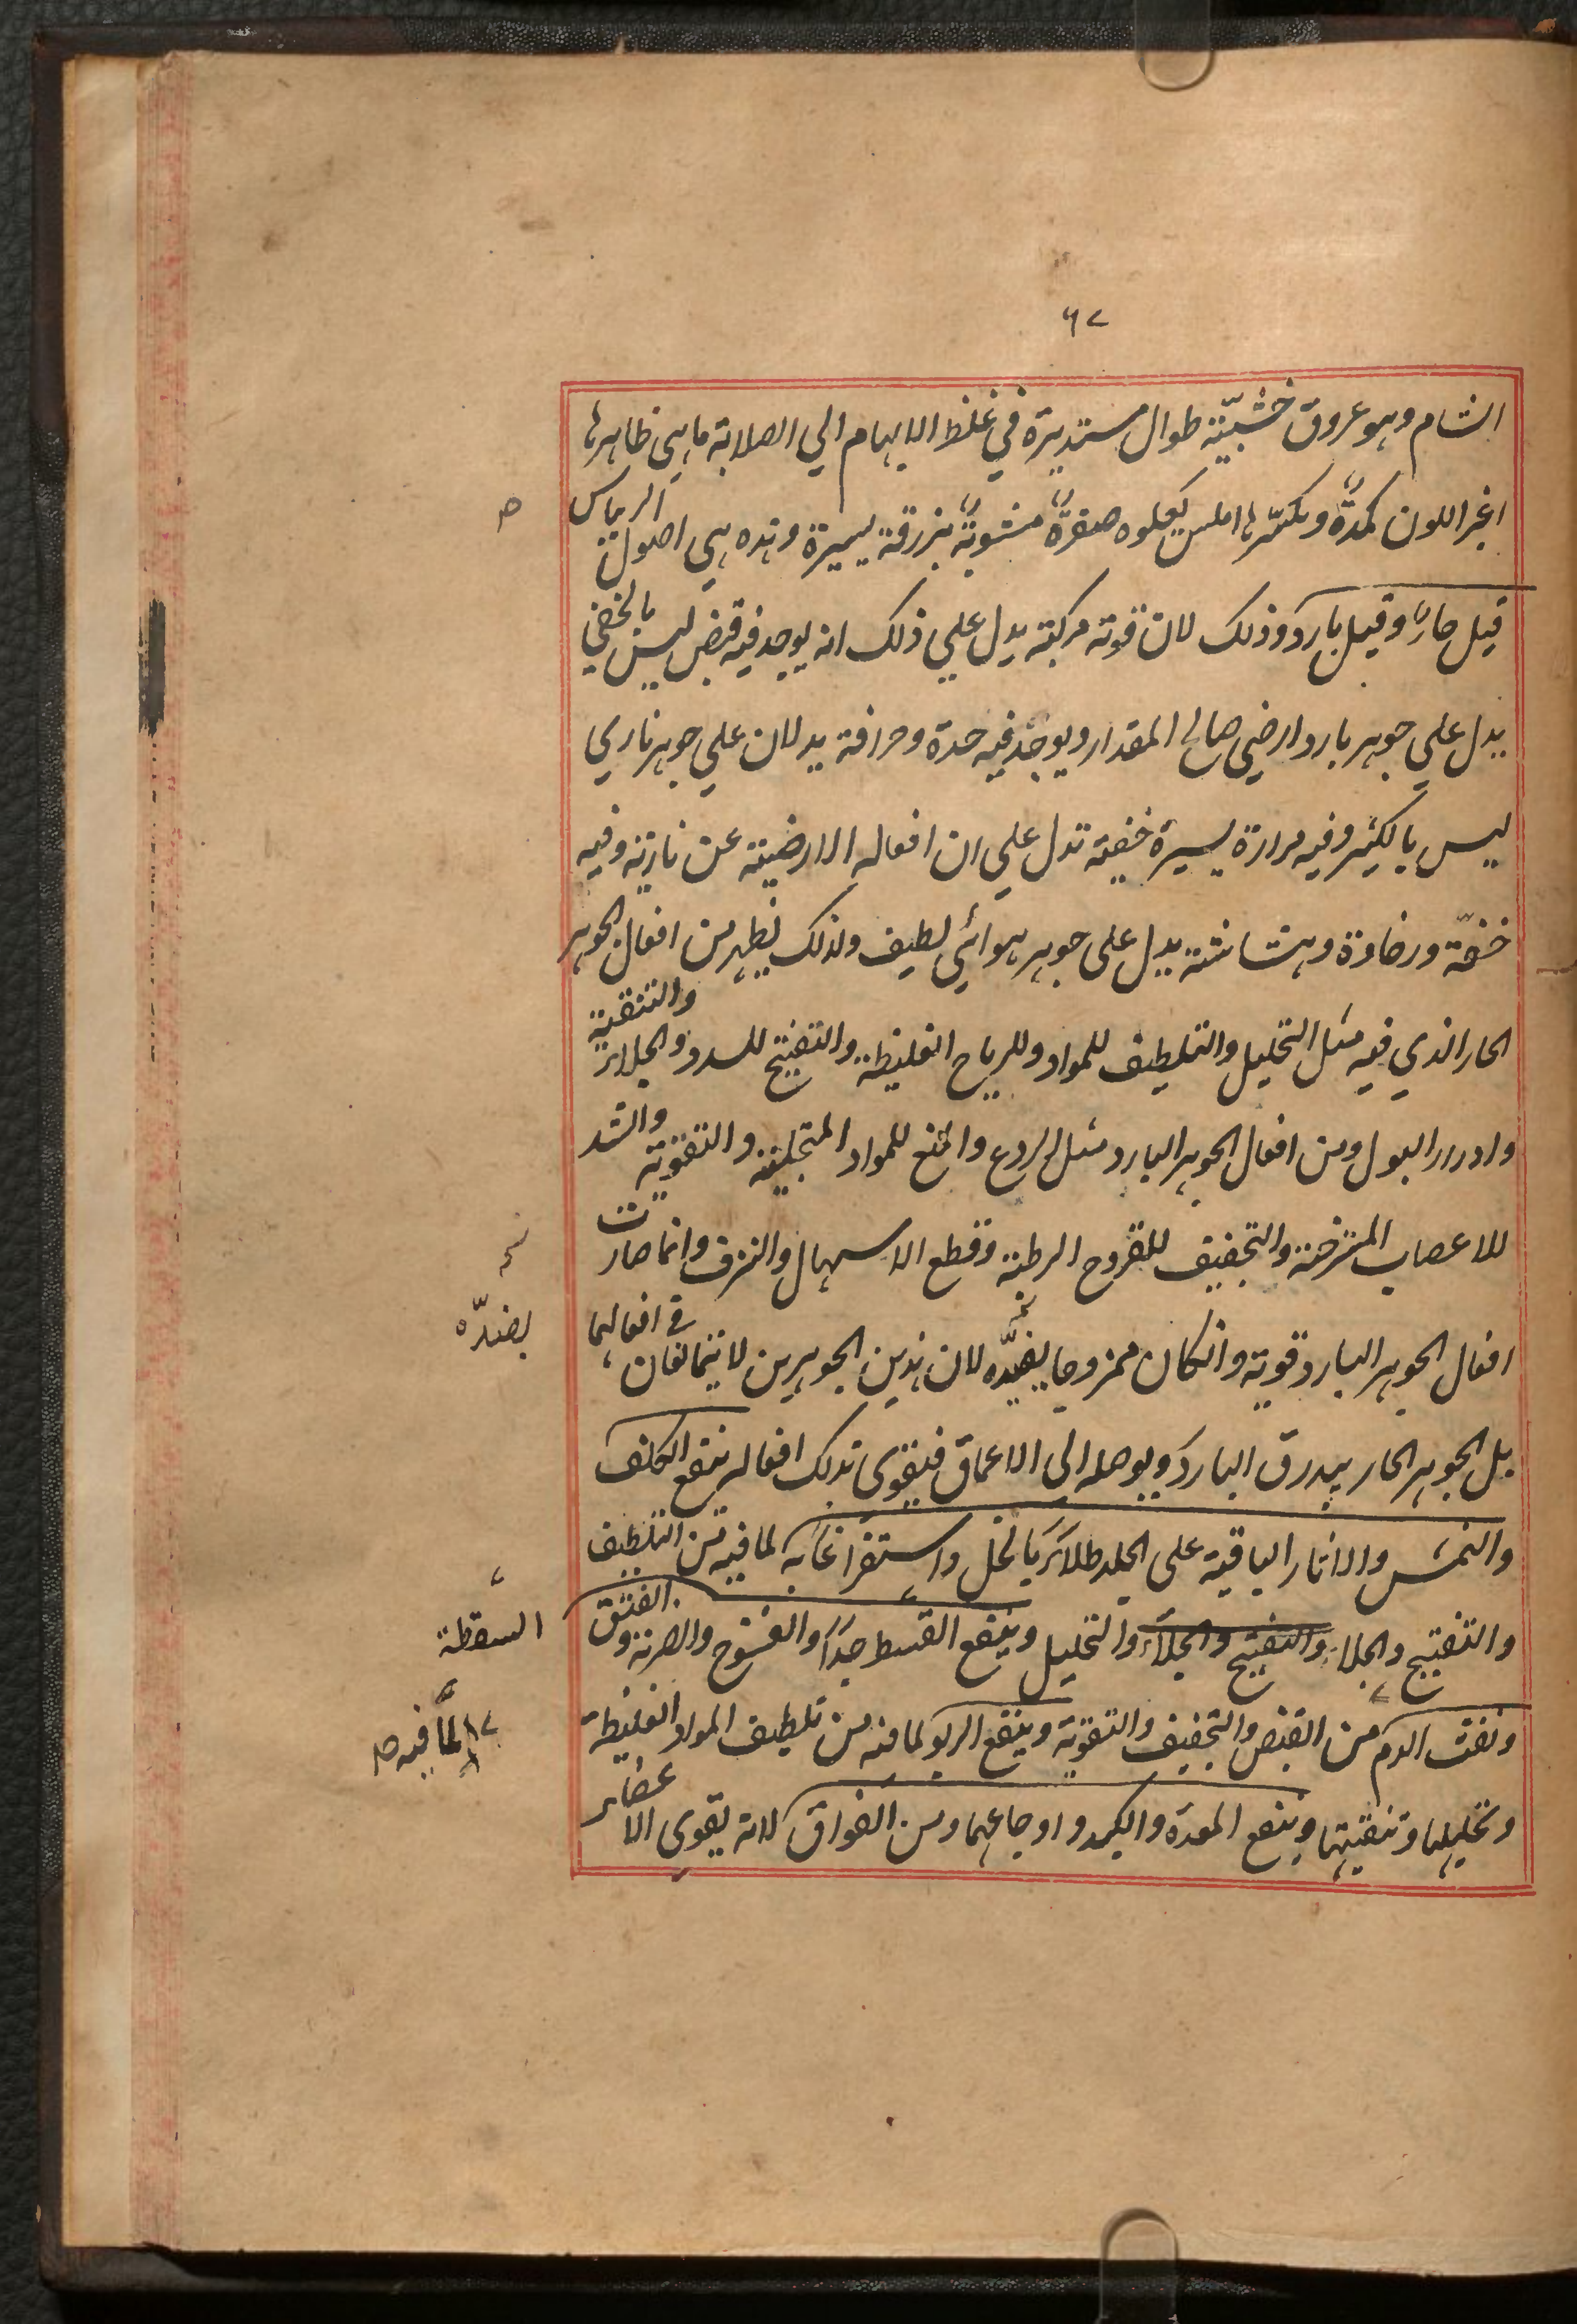 ٦٧
الشام وهو عروق خشبيّة طوال مستديرة في غلظ الابهام الي الصلابة ما هي ظاهرها
اغبر اللون كمدةٌ ومكسّرها املس يعلوه صفرةٌ مشوبةٌ بزرقة يسيرة وهذه هي اصول الريباس
قيل حارٌ وقيل بارد وذلك لان قوته مركبة يدل علي ذلك انه يوجد فيه قبض ليس بالخفي
يدل علي جوهر بارد ارضي صالح المقدار ويوجد فيه حدة وحرافة يدلان علي جوهر ناري
ليس بالكثير وفيه مرارة يسيرة خفية تدل علي ان افعاله الارضية عن نارية وفيه
خفّة ورخاوة وهشاشة يدل على جوهر هوائي لطيف ولذلك يظهر من افعال الجوهر
الحار الذي فيه مثل التحليل والتلطيف للمواد وللرياح الغليظة والتفتيح للسدد والجلاء والتنقية
وادرار البول ومن افعال الجوهر البارد مثل الردع والمنع للمواد المتجلبة والتقوية والشد
للاعصاب المسترخية والتجفيف للقروح الرطبة وقطع الاسهال والنزف وانما صارت
افعال الجوهر البارد قوية وانكان ممزوجا بضدّه لان هذين الجوهرين لا يتمالعان في افعالهما
بضدّه
بل الجوهر الحار يبدرق البارد ويوصله الي الاعماق فيقوى بذلك افعاله ينفع الكلف
والنمش والاثار الباقية على الجلد طلاءً بالخل واستفراغا به لما فيه من التلطيف
والتفتيح والجلاء والتفتيح والجلاء والتحليل وينفع القسط جدا والفسوخ والضربة والفتق
السقطة
ونفث الدم من القبض والتجفيف والتقوية وينفع الربو لما فيه من تلطيف المواد الغليظة
لما فيه
وتحليلها وتنقيتها وينفع المعدة والكبد واوجاعهما ومن الفواق لانه يقوى الاعضاء